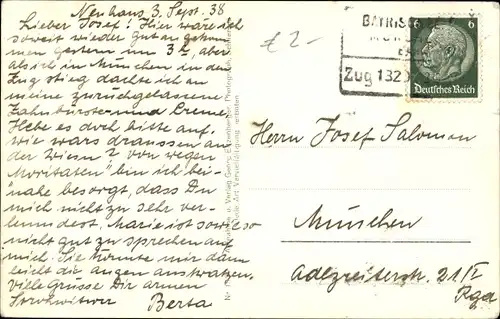 Neuhaus 3. Sept. 38
Lieber Josef! Hier wäre ich
soweit wieder gut angekom
men gestern um 3h, aber
als ich in München in den
Zug stieg dachte ich an
meine zurückgelassene
Zahnbürste und Creme,
Hebe es doch bitte auf.
Wie wars draussen an
der Wiesn? von wegen
"Moritaten" bin ich bei-
nahe besorgt, dass Du
mich nicht zu sehr ver-
leumdest. Marie ist sowieso
nicht gut zu sprechen auf
mich. Sie könnte mir dann
leicht die Augen auskratzen.
Viele Grüsse Dir armen
Strohwitwer Berta
£ 2-
BAYRISCHZELL
MÜNCHEN
Zug 132
6 6
Deutsches Reich
Herrn Josef Salomon
München
Adlzreiterstr. 21/I
Rgb